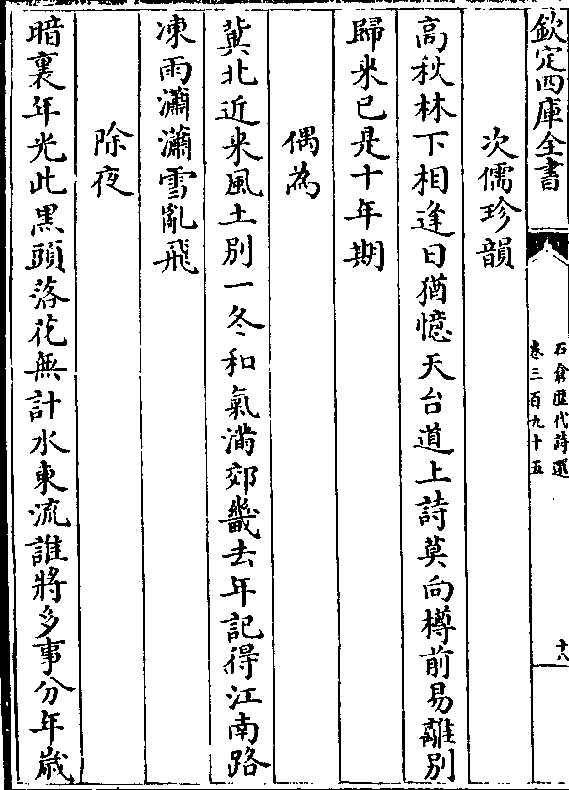 欽定四庫全書
石倉歴代詩選
卷三百九十五
十八
次儒珍韻
高秋林下相逢日猶憶天台道上詩莫向樽前易離別
歸来已是十年期
偶為
冀北近来風土別一冬和氣滿郊畿去年記得江南路
凍雨瀟瀟雪亂飛
除夜
暗裏年光此黒頭落花無計水東流誰將多事分年歳